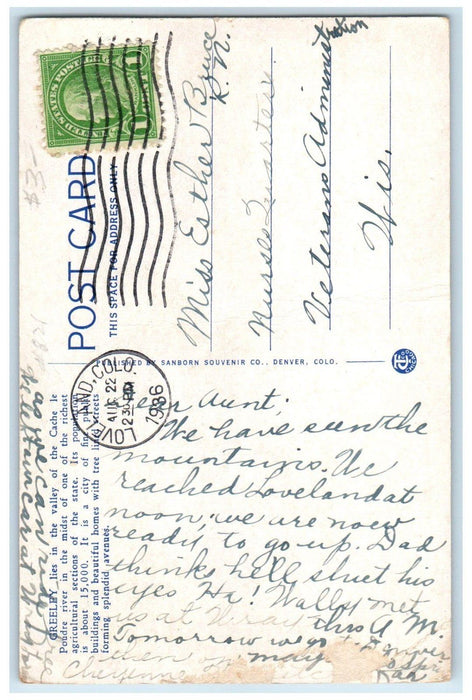 POST CARD
THIS SPACE FOR ADDRESS ONLY
Miss Esther Bruce
R. N.
Nurses Quarters
Veterans Administration
Wis.
PUBLISHED BY SANBORN SOUVENIR CO., DENVER, COLO.
LOVELAND, COLO.
AUG 22
2 30 PM
1936
GREELEY lies in the valley of the Cache le
Poudre river in the midst of one of the richest
agricultural sections of the state. Its population
is about 15,000. It is a city of fine public
buildings and beautiful homes with tree lined streets
forming splendid avenues.
Dear Aunt;
We have seen the
mountains. We
reached Loveland at
noon; we are now
ready to go up. Dad
thinks hell shut his
eyes Ha! Wally met
us at this A M.
Tomorrow we go
then on
Cheyenne